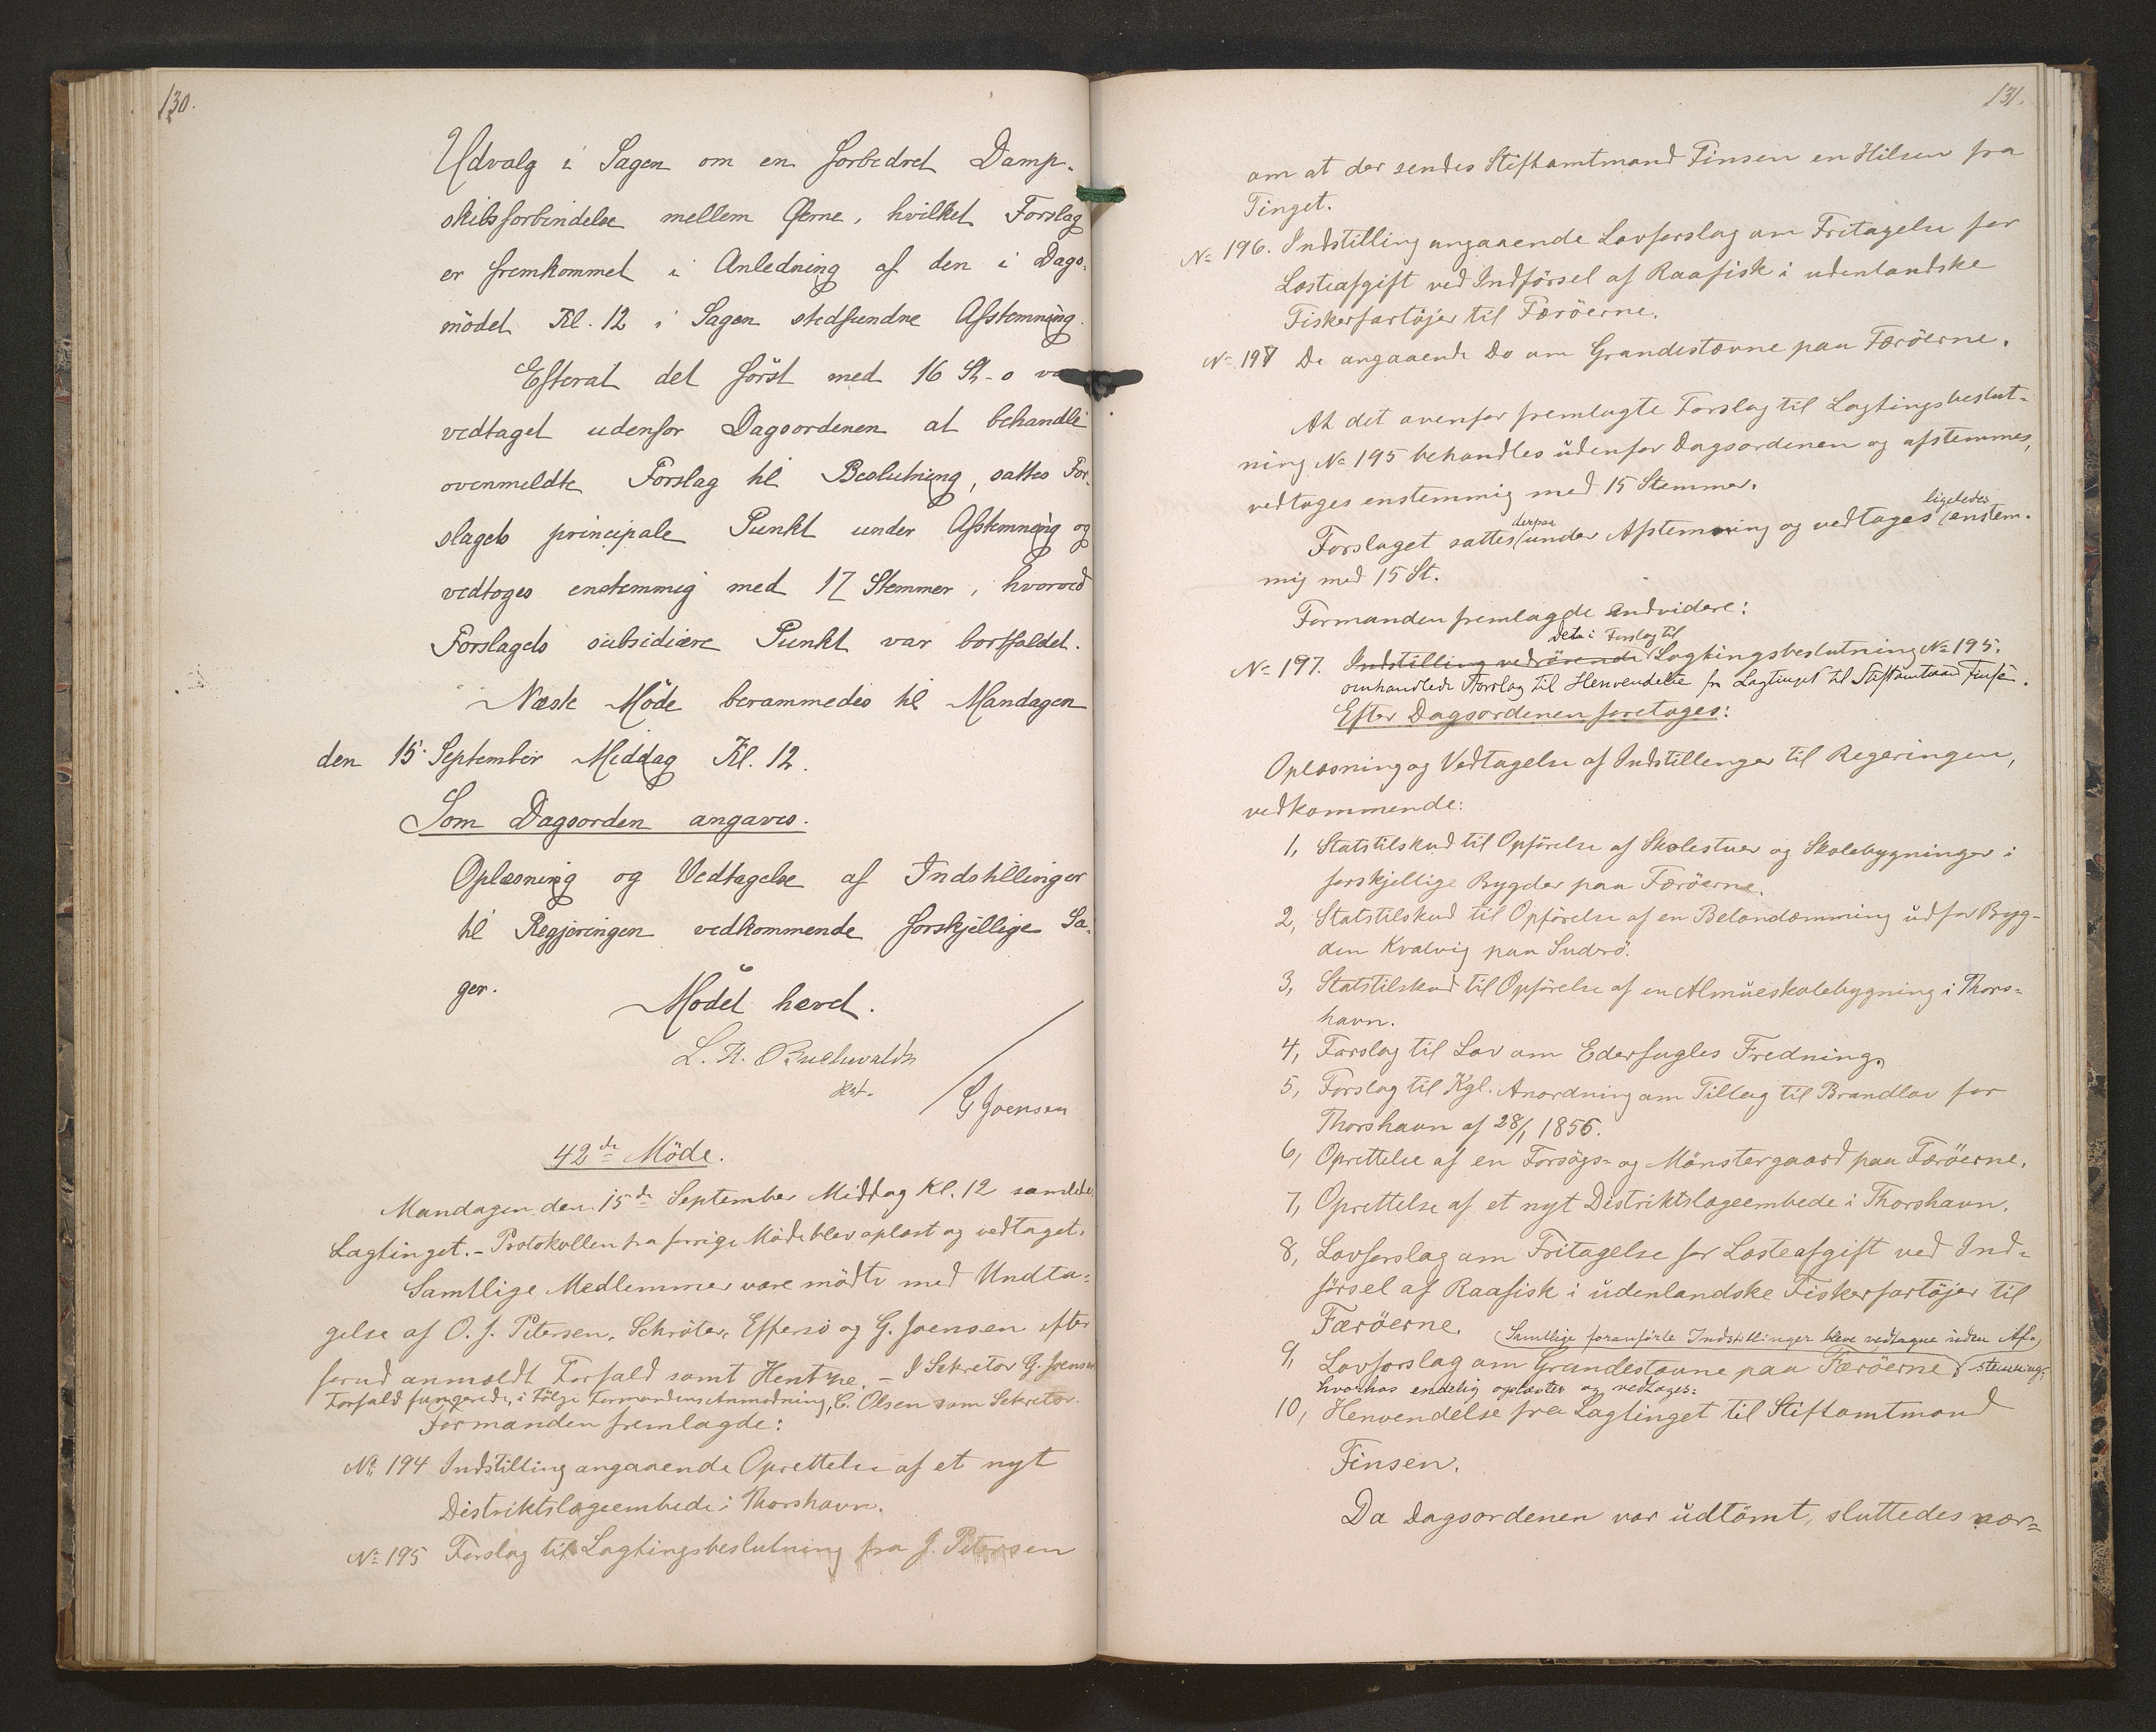 130.
Udvalg i Sagen om en forbedret Damp-
skibsforbindelse mellem Øerne, hvilket Forslag
er fremkommet i Anledning af den i Dags-
mödet Kl. 12 i Sagen stedfundne Afstemning.
Efterat det først med 16 St. - 0 va
vedtaget udenfor Dagsordenen at behandle
ovenmeldte Forslag til Beslutning, sattes For-
slagets principale Punkt under Afstemning og
vedtoges enstemmig med 17 Stemmer, hvorved
Forslagets subsidiære Punkt var bortfaldet.
Næste Möde berammedes til Mandagen
den 15. September Middag Kl. 12.
Som Dagsorden angaves.
Oplæsning og Vedtagelse af Indstillinger
til Regjeringen vedkommende forskjellige Sa-
ger.
Mödet hævet.
L. H. Buchwaldt
G Joensen
42de Möde.
Mandagen den 15de September Middag Kl. 12 samledes
Lagtinget. - Protokollen fra forrige Möde blev oplæst og vedtaget.
Samtlige Medlemmer vare mödte med Undta-
gelse af O. J. Petersen, Schröter, Effersö og G. Joensen efter
forud anmeldt Forfald samt Hentze. - I Sekretær G. Joensens
Forfald fungerede, i Følge Formandens Anmodning, C. Olsen som Sekretær.
Formanden fremlagde:
No. 194 Indstilling angaaende Oprettelse af et nyt
Distriktslægeembede i Thorshavn.
No 195 Forslag til Lagtingsbeslutning fra J. Petersen
131.
om at der sendes Stiftamtmand Finsen en Hilsen fra
Tinget.
No 196. Indstilling angaaende Lovforslag om Fritagelse for
Lasteafgift ved Indförsel af Raafisk i udenlandske
Fiskerfartöjer til Færöerne.
No 198 Do angaaende Do om Grandestævne paa Færöerne.
At det ovenfor fremlagte Forslag til Lagtingsbeslut-
ning No 195 behandles udenfor Dagsordenen og afstemmes,
vedtages enstemmig med 15 Stemmer.
derpaa ligeledes
Forslaget sattes under Afstemning og vedtages enstem-
mig med 15 St.
Formanden fremlagde endvidere:
Det i Forslag til
No 197. Indstilling vedrörende Lagtingsbeslutning No 195.
omhandlede Forslag til Henvendelse fra Lagtinget til Stiftamtmand Finsen.
Efter Dagsordenen foretoges:
Oplæsning og Vedtagelse af Indstillinger til Regeringen,
vedkommende:
1, Statstilskud til Opförelse af Skolestuer og Skolebygninger i
forskjellige Bygder paa Færöerne.
2, Statstilskud til Opförelse af en Betondæmning udfor Byg-
den Kvalvig paa Suderö.
3, Statstilskud til Opförelse af en Almueskolebygning i Thors-
havn.
4, Forslag til Lov om Ederfugles Fredning.
5, Forslag til Kgl. Anordning om Tillæg til Brandlov for
Thorshavn af 28/1 1856.
6, Oprettelse af en Forsögs- og Mönstergaard paa Færöerne.
7, Oprettelse af et nyt Distriktslægeembede i Thorshavn.
8, Lovforslag om Fritagelse for Lasteafgift ved Ind-
försel af Raafisk i udenlandske Fiskerfartöjer til
Færöerne.
Samtlige foranförte Indstillinger bleve vedtagne uden Af-
9, Lovforslag om Grandestævne paa Færöerne stemning;
hvorhos endelig oplæstes og vedtoges:
10, Henvendelse fra Lagtinget til Stiftamtmand
Finsen.
Da Dagsordenen var udtömt, sluttedes nær-